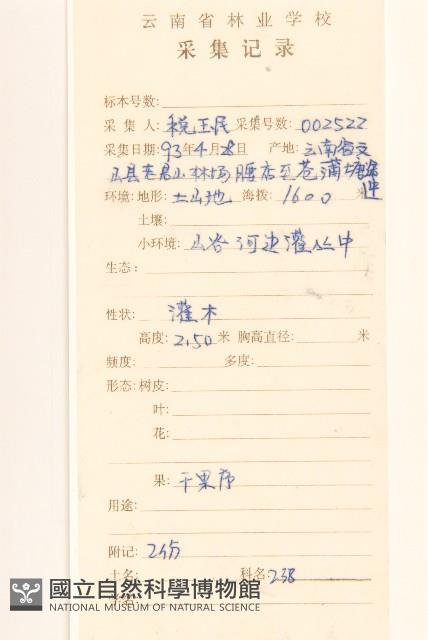 云南省林业学校
采集记录
标本号数:
采集人: 税玉民 采集号数: 002522
采集日期: 93年4月28日 产地: 云南省文
山县老君山林场腰店至苍蒲塘途
环境: 地形: 土山地 海拨: 1600 米
土壤:
小环境: 山谷河边灌丛中
生态:
性状: 灌木
高度: 2.50 米 胸高直径: 米
频度: 多度:
形态: 树皮:
叶:
花:
果: 干果序
用途:
附记: 2份
土名: 科名: 238
國立自然科學博物館
NATIONAL MUSEUM OF NATURAL SCIENCE